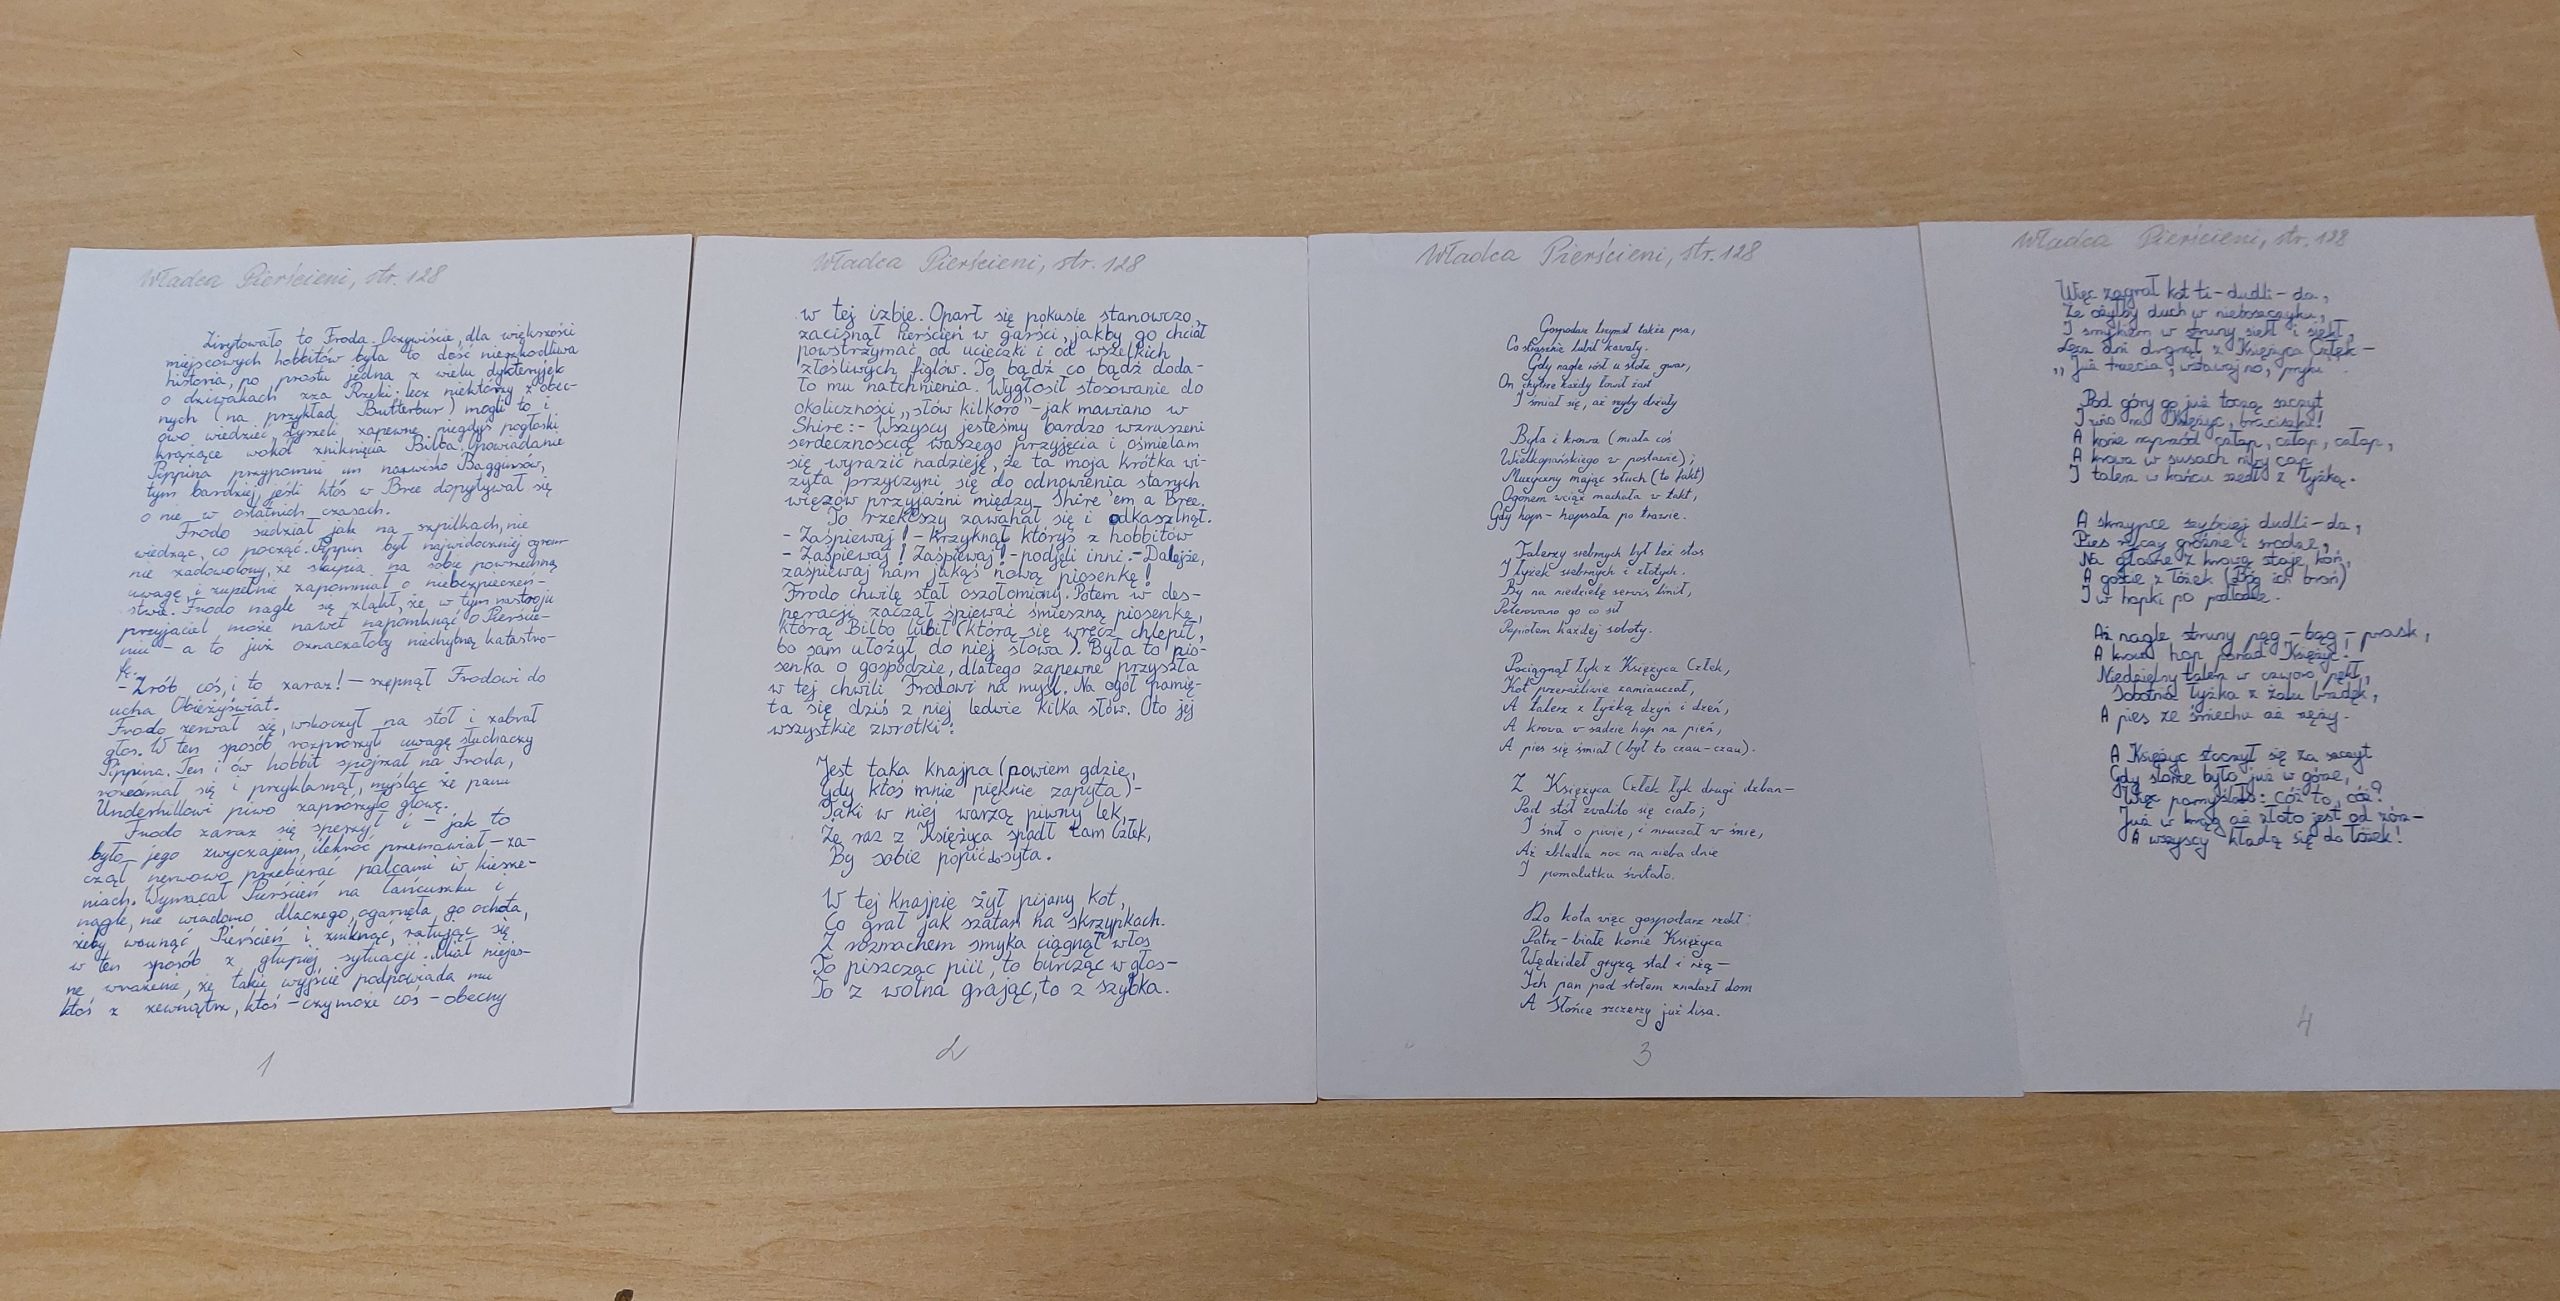 Władca Pierścieni, str. 128
Zirytowało to Froda. Oczywiście, dla większości
miejscowych hobbitów była to dość nieszkodliwa
historia, po prostu jedna z wielu dykteryjek
o dziwakach zza Rzeki; lecz niektórzy z obec-
nych (na przykład Butterbur) mogli to i
owo wiedzieć, słyszeli zapewne niegdyś pogłoski
krążące wokół zniknięcia Bilba. Opowiadanie
Pippina przypomni im nazwisko Bagginsów,
tym bardziej, jeśli ktoś w Bree dopytywał się
o nie w ostatnich czasach.
Frodo siedział jak na szpilkach, nie
wiedząc, co począć. Pippin był najwidoczniej ogrom-
nie zadowolony, że skupia na sobie powszechną
uwagę, i zupełnie zapomniał o niebezpieczeń-
stwie. Frodo nagle się zląkł, że w tym nastroju
przyjaciel może nawet napomknąć o Pierście-
niu – a to już oznaczałoby niechybną katastro-
fę.
– Zrób coś, i to zaraz! – szepnął Frodowi do
ucha Obieżyświat.
Frodo zerwał się, wskoczył na stół i zabrał
głos. W ten sposób rozproszył uwagę słuchaczy
Pippina. Ten i ów hobbit spojrzał na Froda,
roześmiał się i przyklasnął, myśląc że panu
Underhillowi piwo zaprószyło głowę.
Frodo zaraz się speszył i – jak to
było jego zwyczajem, ilekroć przemawiał – za-
czął nerwowo przebierać palcami w kiesze-
niach. Wymacał Pierścień na łańcuszku i
nagle, nie wiadomo dlaczego, ogarnęła go ochota,
żeby wsunąć Pierścień i zniknąć, ratując się
w ten sposób z głupiej sytuacji. Miał niejas-
ne wrażenie, że takie wyjście podpowiada mu
ktoś z zewnątrz, ktoś – czy może coś – obecny
1
Władca Pierścieni, str. 128
w tej izbie. Oparł się pokusie stanowczo,
zacisnął Pierścień w garści, jakby go chciał
powstrzymać od ucieczki i od wszelkich
złośliwych figlów. To bądź co bądź doda-
ło mu natchnienia. Wygłosił stosowanie do
okoliczności „słów kilkoro" – jak mawiano w
Shire: – Wszyscy jesteśmy bardzo wzruszeni
serdecznością waszego przyjęcia i ośmielam
się wyrazić nadzieję, że ta moja krótka wi-
zyta przyczyni się do odnowienia starych
więzów przyjaźni między Shire'em a Bree.
To rzekłszy zawahał się i odkaszlnął.
– Zaśpiewaj! – krzyknął któryś z hobbitów
– Zaśpiewaj! Zaśpiewaj! – podjęli inni. – Dalejże,
zaśpiewaj nam jakąś nową piosenkę!
Frodo chwilę stał oszołomiony. Potem w des-
peracji zaczął śpiewać śmieszną piosenkę,
którą Bilbo lubił (którą się wręcz chlepił,
bo sam ułożył do niej słowa). Była to pio-
senka o gospodzie, dlatego zapewne przyszła
w tej chwili Frodowi na myśl. Na ogół pamię-
ta się dziś z niej ledwie kilka słów. Oto jej
wszystkie zwrotki:
Jest taka knajpa (powiem gdzie,
Gdy ktoś mnie pięknie zapyta) –
Taki w niej warzą piwny lek,
Że raz z Księżyca spadł tam Człek,
By sobie popić do syta.
W tej knajpie żył pijany kot,
Co grał jak szatan na skrzypkach.
Z rozmachem smyka ciągnął włos
To piszcząc piii, to burcząc w głos –
To z wolna grając, to z szybka.
2
Władca Pierścieni, str. 128
Gospodarz trzymał także psa,
Co strasznie lubił kawały.
Gdy nagle rósł u stołu gwar,
On chytrze każdy łowił żart
I śmiał się, aż szyby drżały
Była i krowa (miała coś
Wielkopańskiego w postawie);
Muzyczny mając słuch (to fakt)
Ogonem wciąż machała w takt,
Gdy hops – hopsała po trawie.
Talerzy srebrnych był też stos
I łyżek srebrnych i złotych.
By na niedzielę serwis lśnił,
Polerowano go co sił
Popiołem każdej soboty.
Pociągnął łyk z Księżyca Człek,
Kot przeraźliwie zamiauczał,
A talerz z łyżką dzyń i dzeń,
A krowa w sadzie hop na pień,
A pies się śmiał (był to czau-czau).
Z Księżyca Człek łyk drugi dzban –
Pod stół zwaliło się ciało;
I śnił o piwie, i mruczał w śnie,
Aż zbladła noc na nieba dnie
I pomalutku świtało.
Do kota więc gospodarz rzekł:
Patrz – białe konie Księżyca
Wędzideł gryzą stal i rżą –
Ich pan pod stołem znalazł dom
A Słońce szczerzy już lica.
3
Władca Pierścieni, str. 128
Więc zagrał kot ti – dudli – da,
Że ożyłby duch w nieboszczyku,
I smykiem w struny siekł i siekł,
Leżą ani drgnął z Księżyca Człek –
„Już trzecia, wstawaj no, pryku".
Pod górę go już toczą szczyt
I siup na Księżyc, braciszku!
A konie naprzód całap, całap, całap,
A krowa w susach niby cap
I talerz w końcu szedł z łyżką.
A skrzypce szybciej dudli – da,
Pies ryczy groźnie i srodze,
Na głowie z krową staje koń,
A goście z łóżek (Bóg ich broń)
I w hopki po podłodze.
Aż nagle struny pąg – bąg – prask,
A krowa hop ponad Księżyc!
Niedzielny talerz w czworo pękł,
Sobotnia łyżka z żalu brzdęk,
A pies ze śmiechu aż rzęży.
A Księżyc stoczył się za szczyt
Gdy słońce było już w górze,
Więc pomyślało: Cóż to, cóż?
Już w krąg aż złoto jest od zórz –
A wszyscy kładą się do łóżek!
4